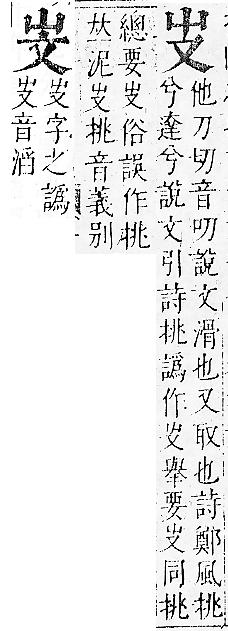 𠬢
他刀切音叨說文滑也又取也詩鄭風挑
兮逹兮說文引詩挑譌作𠬢舉要𠬢同挑
總要𠬢俗誤作挑
𠀤泥𠬢挑音義别
𠬢字之譌
𠬢音滔